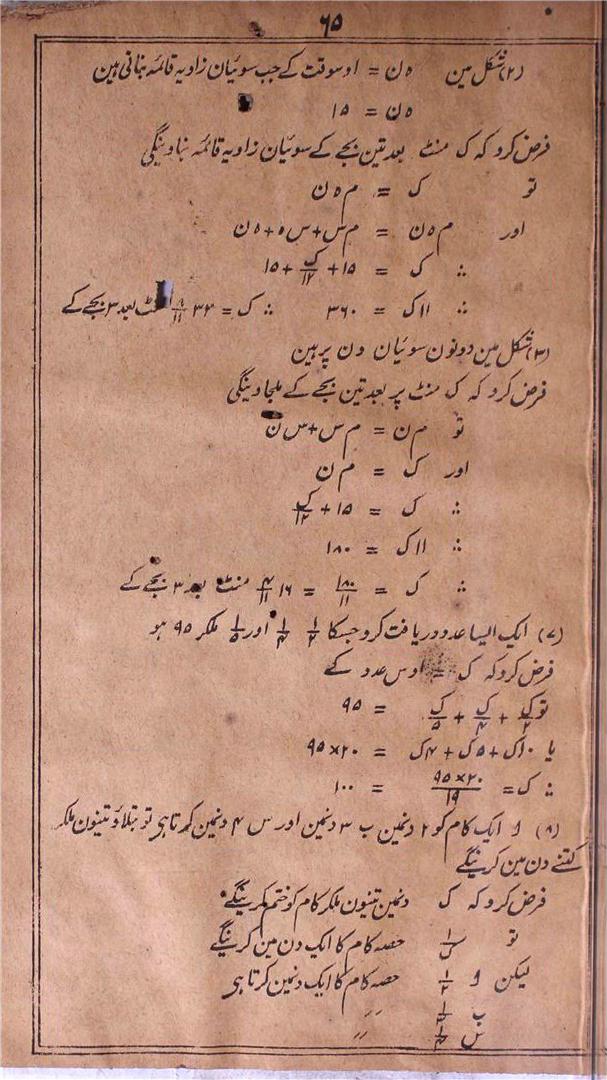 ۶۵
(۲) شکل مین ہ ن = اوسوقت کے جب سوئیان زاویہ قائمہ بناتی ہین
ہ ن = ۱۵
فرض کرو کہ ک منٹ بعد تین بجے کے سوئیان زاویہ قائمہ بناوینگی
تو ک = م ہ ن
اور م ہ ن = م س + س ہ + ہ ن
∴ ک = ۱۵ + ک/۱۲ + ۱۵
∴ ۱۱ک = ۳۶۰ ∴ ک = ۳۲ ۸/۱۱ منٹ بعد ۳ بجے کے
(۳) شکل مین دونون سوئیان و ن پر ہین
فرض کرو کہ ک منٹ پر بعد تین بجے کے ملجاوینگی
تو م ن = م س + س ن
اور ک = م ن
∴ ک = ۱۵ + ک/۱۲
∴ ۱۱ک = ۱۸۰
∴ ک = ۱۸۰/۱۱ = ۱۶ ۴/۱۱ منٹ بعد ۳ بجے کے
(۷) ایک ایسا عدد دریافت کرو جسکا ۱/۲ ۱/۴ اور ۱/۵ ملکر ۹۵ ہو
فرض کرو کہ ک = اوس عدد کے
تو ک/۲ + ک/۴ + ک/۵ = ۹۵
یا ۱۰ک + ۵ک + ۴ک = ۹۵×۲۰
∴ ک = ۹۵×۲۰/۱۹ = ۱۰۰
(۸) ا ایک کام کو ۲ دنمین ب ۳ دنمین اور س ۴ دنمین کرتا ہی تو بتلاؤ تینون ملکر
کتنے دن مین کرینگے
فرض کرو کہ ک دنمین تینون ملکر کام کو ختم کرینگے
تو ۱/ک حصہ کام کا ایک دن مین کرینگے
لیکن ا ۱/۲ حصہ کام کا ایک دنمین کرتا ہی
ب ۱/۳ ״
س ۱/۴ ״